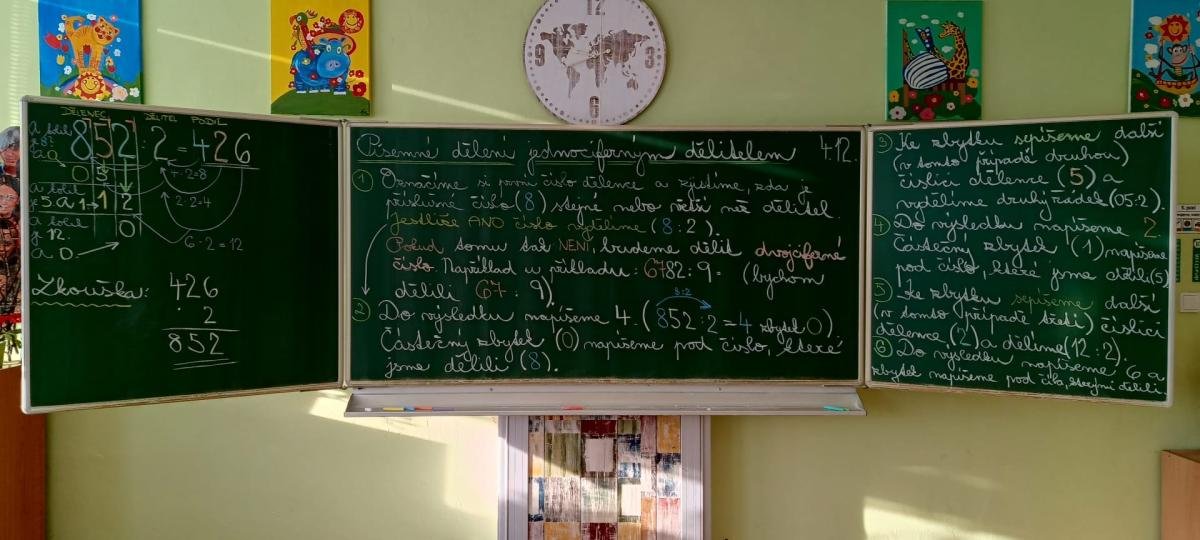 12
9 3
6
DĚLENEC DĚLITEL PODÍL
852 : 2 = 426
05 4·2=8
12 2·2=4
0 6·2=12
Zkouška: 426
· 2
852
Písemné dělení jednociferným dělitelem 4.12.
① Označíme si první číslo dělence a zjistíme, zda je
příslušné číslo (8) stejné nebo větší než dělitel.
Jestliže ANO číslo vydělíme (8:2).
Pokud tomu tak NENÍ, budeme dělit dvojciferné
číslo. Například u příkladu: 6782:9= (bychom
dělili 67:9).
8:2
② Do výsledku napíšeme 4. (852:2=4 zbytek 0).
Částečný zbytek (0) napíšeme pod číslo, které
jsme dělili (8).
③ Ke zbytku sepíšeme další
(v tomto případě druhou)
číslici dělence (5) a
vydělíme druhý řádek (05:2).
④ Do výsledku napíšeme 2
Částečný zbytek (1) napíšeme
pod číslo, které jsme dělili (5)
⑤ Ke zbytku sepíšeme další
(v tomto případě třetí) číslici
dělence (2) a dělíme (12:2).
⑥ Do výsledku napíšeme 6 a
zbytek napíšeme pod